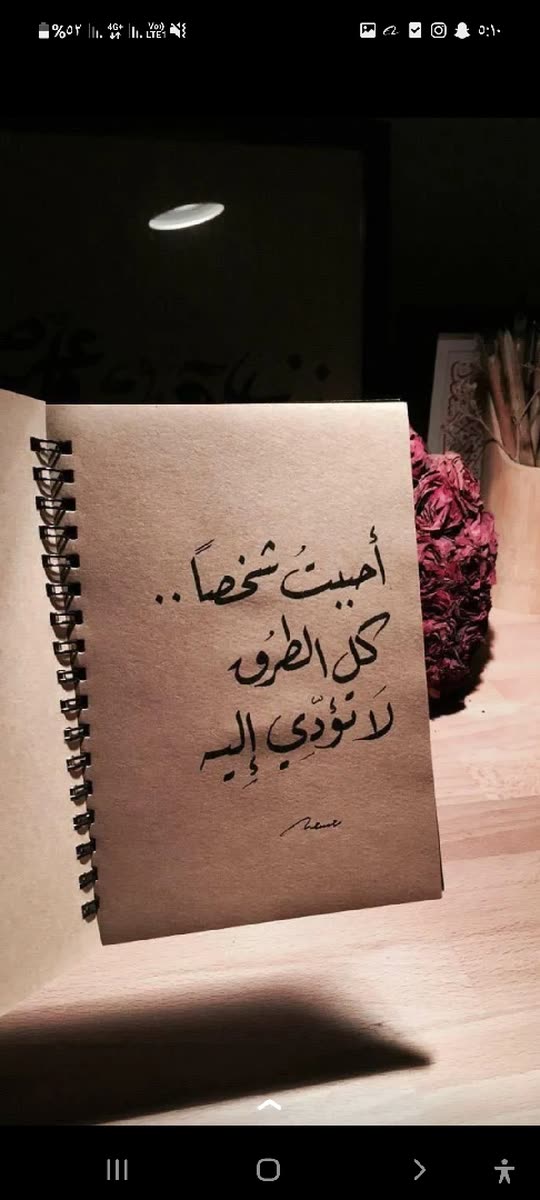 %٥٢ 4G+ Vo) LTE1 ٥:١٠
أحببتُ شخصاً ..
كل الطرُق
لَا تؤدِّي إِليه